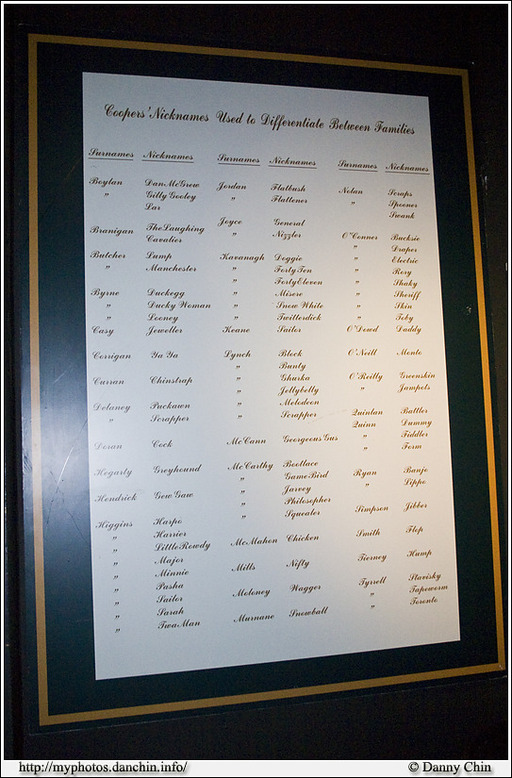 Coopers' Nicknames Used to Differentiate Between Families
Surnames Nicknames
Boylan Dan McGrew
" Gilly Gooley
Lar
Branigan The Laughing
Cavalier
Butcher Lump
" Manchester
Byrne Duckegg
" Ducky Woman
" Looney
Casy Jeweller
Corrigan Ya Ya
Curran Chinstrap
Delaney Puckawn
" Scrapper
Doran Cock
Hegarty Greyhound
Hendrick Gew Gaw
Higgins Harpo
" Harrier
" Little Rowdy
" Major
" Minnie
" Pasha
" Sailor
" Sarah
" Twa Man
Surnames Nicknames
Jordan Flatbush
" Flattener
Joyce General
" Nizzler
Kavanagh Doggie
" Forty Ten
" Forty Eleven
" Misery
" Snow White
" Twitterdick
Keane Sailor
Lynch Block
" Bunty
" Ghurka
" Jellybelly
" Melodeon
" Scrapper
McCann Georgeous Gus
McCarthy Bootlace
" Game Bird
" Jarvey
" Philosopher
" Squealer
McMahon Chicken
Mills Nifty
Moloney Wagger
Murnane Snowball
Surnames Nicknames
Nolan Scraps
" Spooner
Swank
O'Conner Bucksie
" Draper
" Electric
" Rory
" Shaky
" Sheriff
" Skin
" Toby
O'Dowd Daddy
O'Neill Monto
O'Reilly Greenskin
" Jampots
Quinlan Battler
Quinn Dummy
" Fiddler
" Form
Ryan Banjo
" Lippo
Simpson Jibber
Smith Flop
Tierney Hamp
Tyrell Stavisky
" Tapeworm
" Toronto
http://myphotos.danchin.info/
© Danny Chin